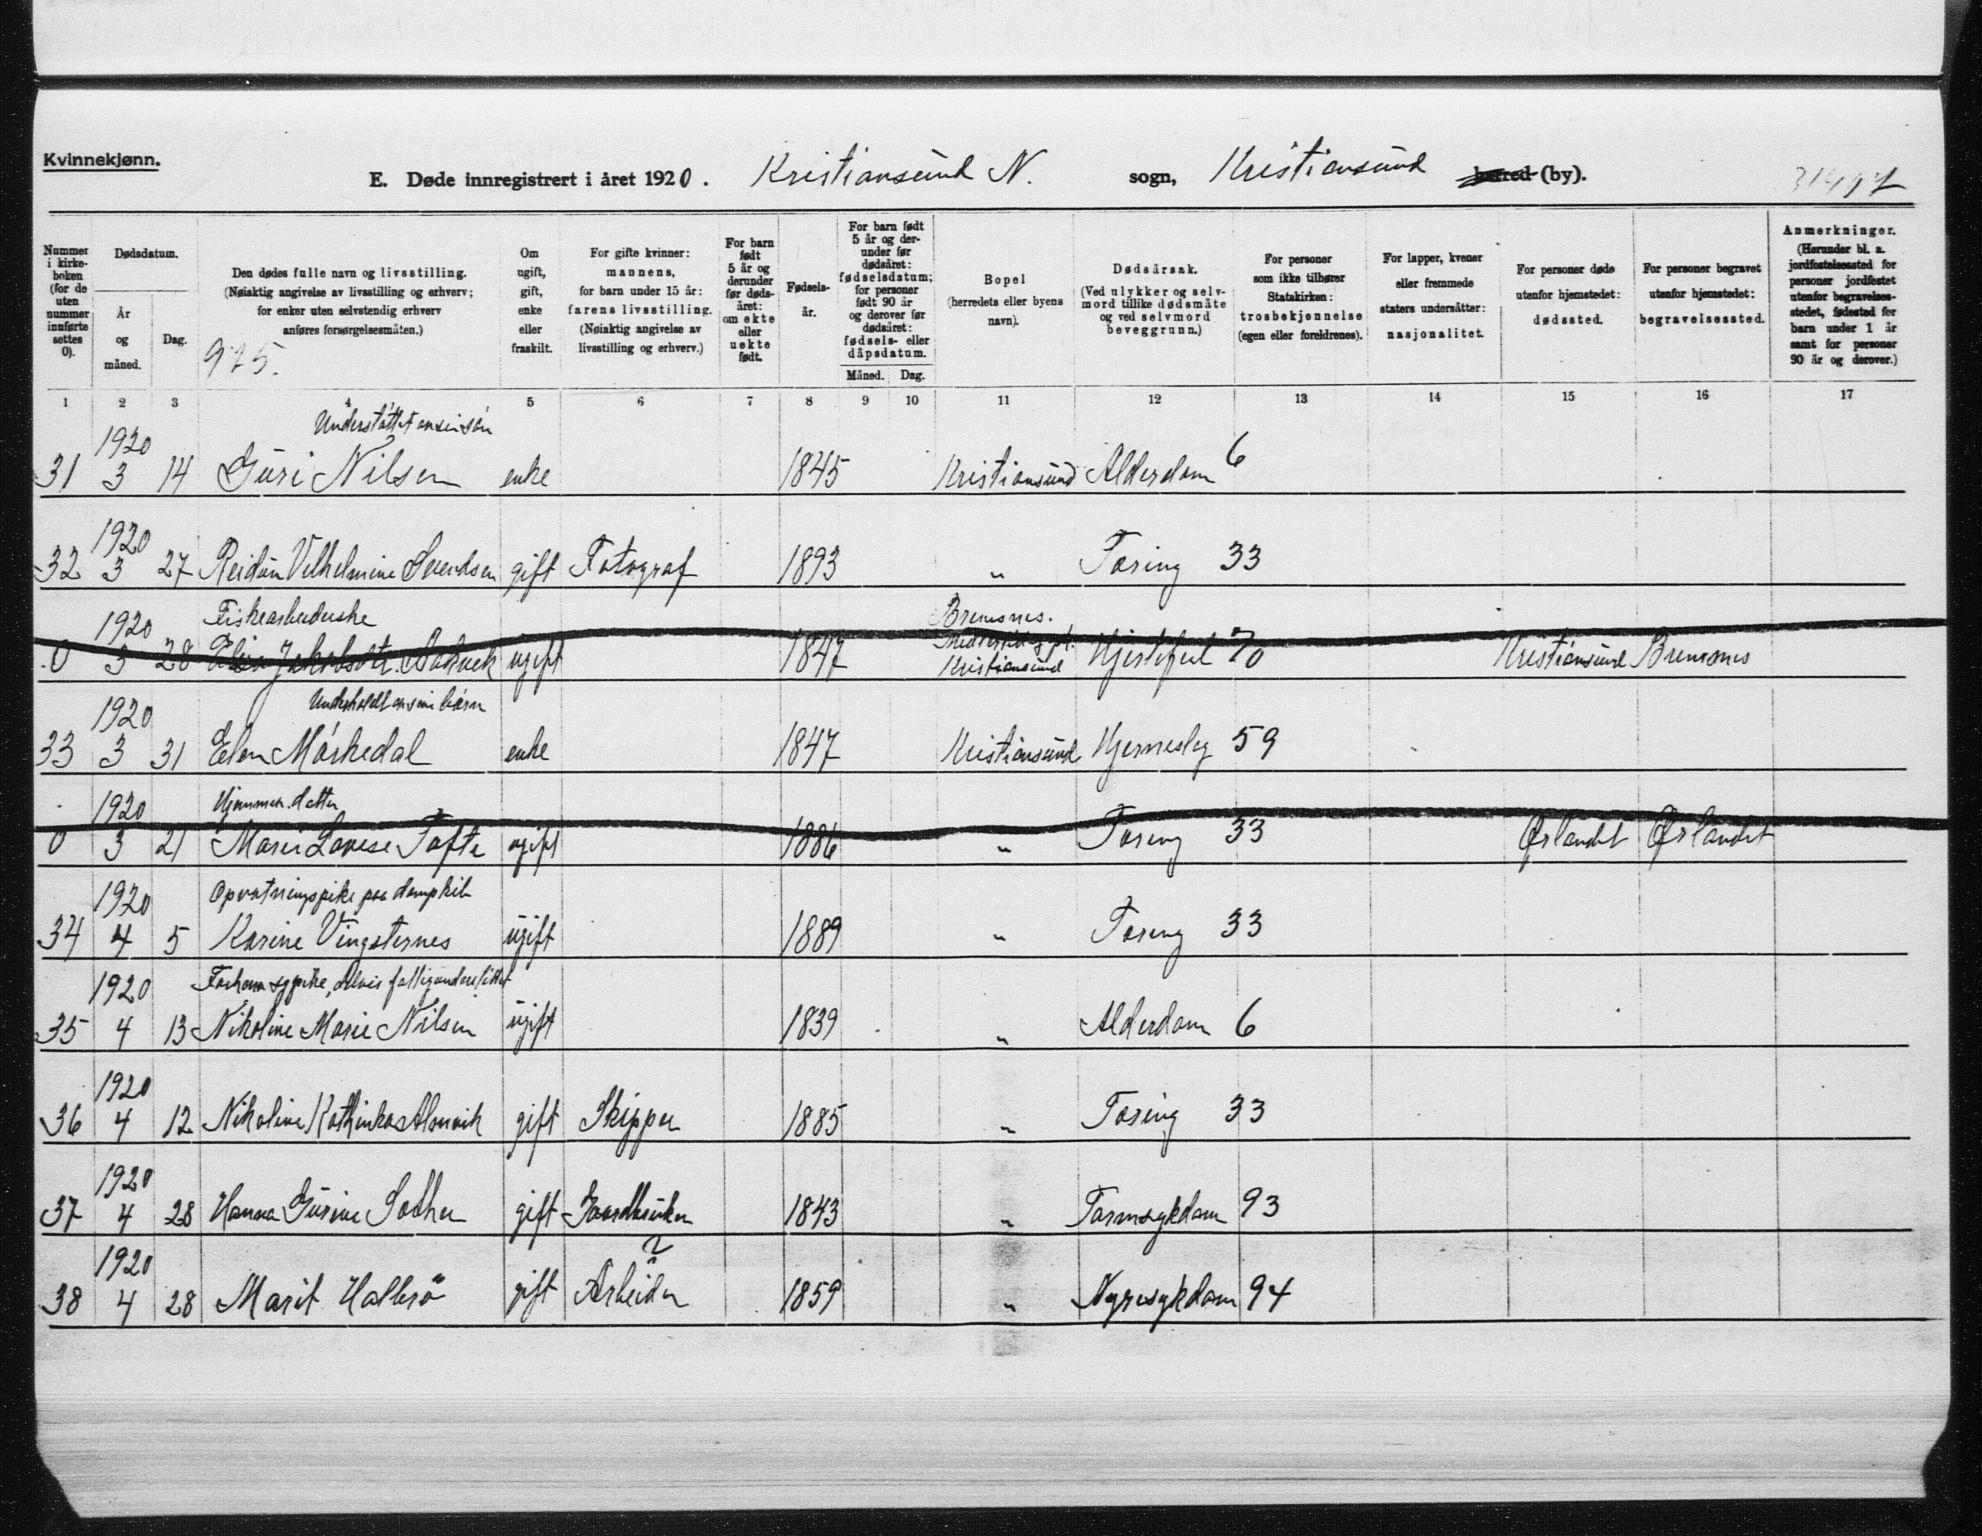 Kvinnekjønn.
E. Døde innregistrert i året 1920. Kristiansund N. sogn, Kristiansund herred (by).
Nummer i kirkeboken (for de uten nummer innførte settes 0).
Dødsdatum.
År og måned.
Dag.
Den dødes fulle navn og livsstilling. (Nøiaktig angivelse av livsstilling og erhverv; for enker uten selvstendig erhverv anføres forsørgelsesmåten.)
925.
Om ugift, gift, enke eller fraskilt.
For gifte kvinner: mannens, for barn under 15 år: farens livsstilling. (Nøiaktig angivelse av livsstilling og erhverv.)
For barn født 5 år og derunder før dødsåret: om ekte eller uekte født.
Fødselsår.
For barn født 5 år og derunder før dødsåret: fødselsdatum; for personer født 90 år og derover før dødsåret: fødsels- eller dåpsdatum.
Måned. Dag.
Bopel (herredets eller byens navn).
Dødsårsak. (Ved ulykker og selvmord tillike dødsmåte og ved selvmord beveggrunn.)
For personer som ikke tilhører Statskirken: trosbekjennelse (egen eller foreldrenes).
For lapper, kvener eller fremmede staters undersåtter: nasjonalitet.
For personer døde utenfor hjemstedet: dødssted.
For personer begravet utenfor hjemstedet: begravelsessted.
Anmerkninger. (Herunder bl. a. jordfestelsessted for personer jordfestet utenfor begravelsesstedet, fødested for barn under 1 år samt for personer 90 år og derover.)
1 2 3 4 5 6 7 8 9 10 11 12 13 14 15 16 17
Understøttet av sin søn
31 1920 3 14 Guri Nilsen enke 1845 Kristiansund Alderdom 6
32 1920 3 27 Reidun Vilhelmine Svendsen gift Fotograf 1893 " Tæring 33
Fiskearbeiderske Bremsnes.
0 1920 3 28 Jakobsdt. ugift 1847 Kristiansund Hjertefeil 70 Kristiansund Bremsnes
Underholdt av sine børn
33 1920 3 31 Elen Mørkedal enke 1847 Kristiansund Hjerneslag 59
Hjemmev. datter
0 1920 3 21 Marie Lovise Tofte ugift 1886 " Tæring 33 Ørlandet Ørlandet
Opvartningspike paa dampskib
34 1920 4 5 Karine Vingsternes ugift 1889 " Tæring 33
35 1920 4 13 Nikoline Marie Nilsen ugift 1839 " Alderdom 6
36 1920 4 12 Nikoline Kathinka Alsvik gift Skipper 1885 " Tæring 33
37 1920 4 28 Hanna Gurine gift Gaardbruker 1843 " Tarmsykdom 93
38 1920 4 28 Marit Halsrø gift Arbeider ? 1859 " Nyresykdom 94